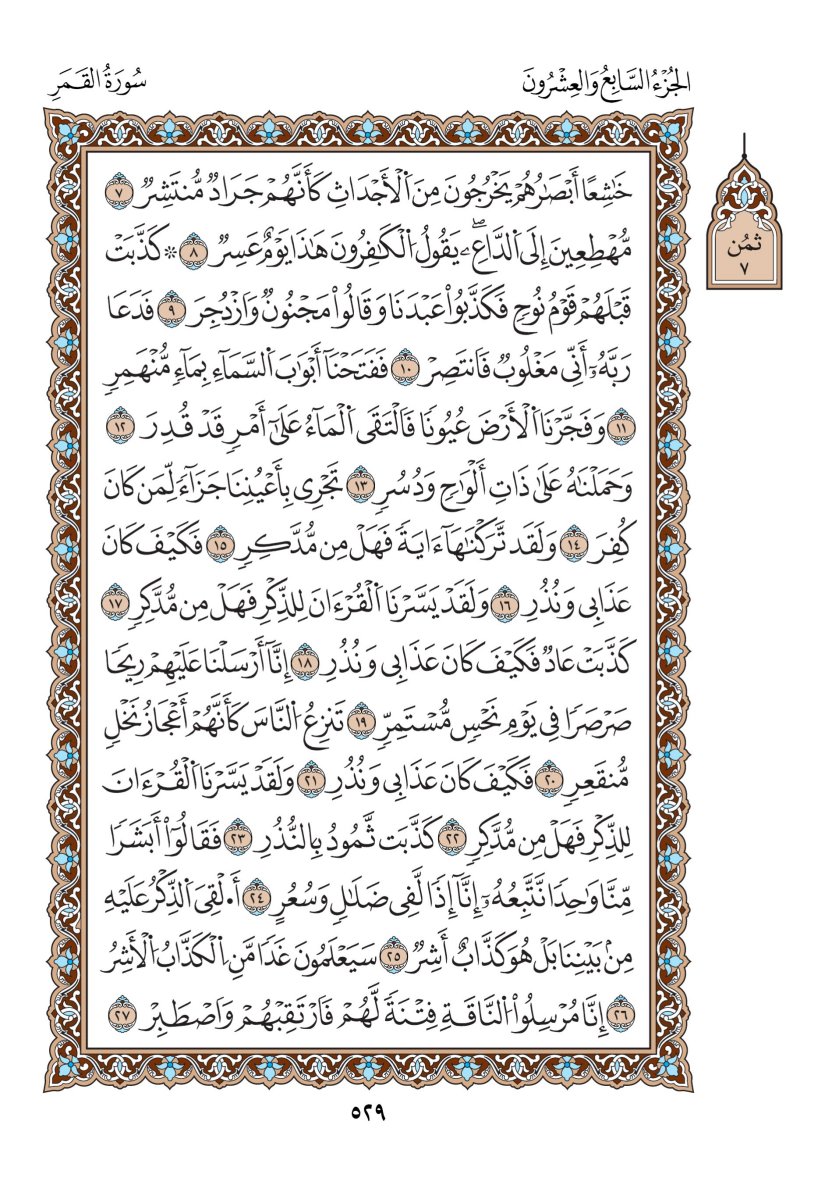 الجُزْءُ السَّابِعُ وَالعِشْرُونَ
سُورَةُ القَمَرِ
خَٰشِعًا أَبْصَٰرُهُمْ يَخْرُجُونَ مِنَ اَلْأَجْدَاثِ كَأَنَّهُمْ جَرَادٌ مُّنتَشِرٌ ٧
ثُمُن
٧
مُّهْطِعِينَ إِلَى اَلدَّاعِۦۖ يَقُولُ اُلْكَٰفِرُونَ هَٰذَا يَوْمٌ عَسِرٌ ٨ ۞ كَذَّبَتْ
قَبْلَهُمْ قَوْمُ نُوحٍ فَكَذَّبُواْ عَبْدَنَا وَقَالُواْ مَجْنُونٌ وَازْدُجِرَ ٩ فَدَعَا
رَبَّهُۥٓ أَنِّي مَغْلُوبٌ فَانتَصِرْ ١٠ فَفَتَحْنَآ أَبْوَٰبَ اَلسَّمَآءِ بِمَآءٍ مُّنْهَمِرٍ
١١ وَفَجَّرْنَا اَلْأَرْضَ عُيُونًا فَالْتَقَى اَلْمَآءُ عَلَىٰٓ أَمْرٍ قَدْ قُدِرَ ١٢
وَحَمَلْنَٰهُ عَلَىٰ ذَاتِ أَلْوَٰحٍ وَدُسُرٍ ١٣ تَجْرِي بِأَعْيُنِنَا جَزَآءً لِّمَن كَانَ
كُفِرَ ١٤ وَلَقَد تَّرَكْنَٰهَآ ءَايَةً فَهَلْ مِن مُّدَّكِرٍ ١٥ فَكَيْفَ كَانَ
عَذَابِي وَنُذُرِ ١٦ وَلَقَدْ يَسَّرْنَا اَلْقُرْءَانَ لِلذِّكْرِ فَهَلْ مِن مُّدَّكِرٍ ١٧
كَذَّبَتْ عَادٌ فَكَيْفَ كَانَ عَذَابِي وَنُذُرِ ١٨ إِنَّآ أَرْسَلْنَا عَلَيْهِمْ رِيحًا
صَرْصَرًا فِي يَوْمِ نَحْسٍ مُّسْتَمِرٍّ ١٩ تَنزِعُ اُلنَّاسَ كَأَنَّهُمْ أَعْجَازُ نَخْلٍ
مُّنقَعِرٍ ٢٠ فَكَيْفَ كَانَ عَذَابِي وَنُذُرِ ٢١ وَلَقَدْ يَسَّرْنَا اَلْقُرْءَانَ
لِلذِّكْرِ فَهَلْ مِن مُّدَّكِرٍ ٢٢ كَذَّبَت ثَّمُودُ بِالنُّذُرِ ٢٣ فَقَالُوٓاْ أَبَشَرًا
مِّنَّا وَٰحِدًا نَّتَّبِعُهُۥٓ إِنَّآ إِذًا لَّفِي ضَلَٰلٍ وَسُعُرٍ ٢٤ أَ۟لْقِيَ اَلذِّكْرُ عَلَيْهِ
مِنۢ بَيْنِنَا بَلْ هُوَ كَذَّابٌ أَشِرٌ ٢٥ سَيَعْلَمُونَ غَدًا مَّنِ اِلْكَذَّابُ اُلْأَشِرُ
٢٦ إِنَّا مُرْسِلُواْ اُلنَّاقَةِ فِتْنَةً لَّهُمْ فَارْتَقِبْهُمْ وَاصْطَبِرْ ٢٧
٥٢٩